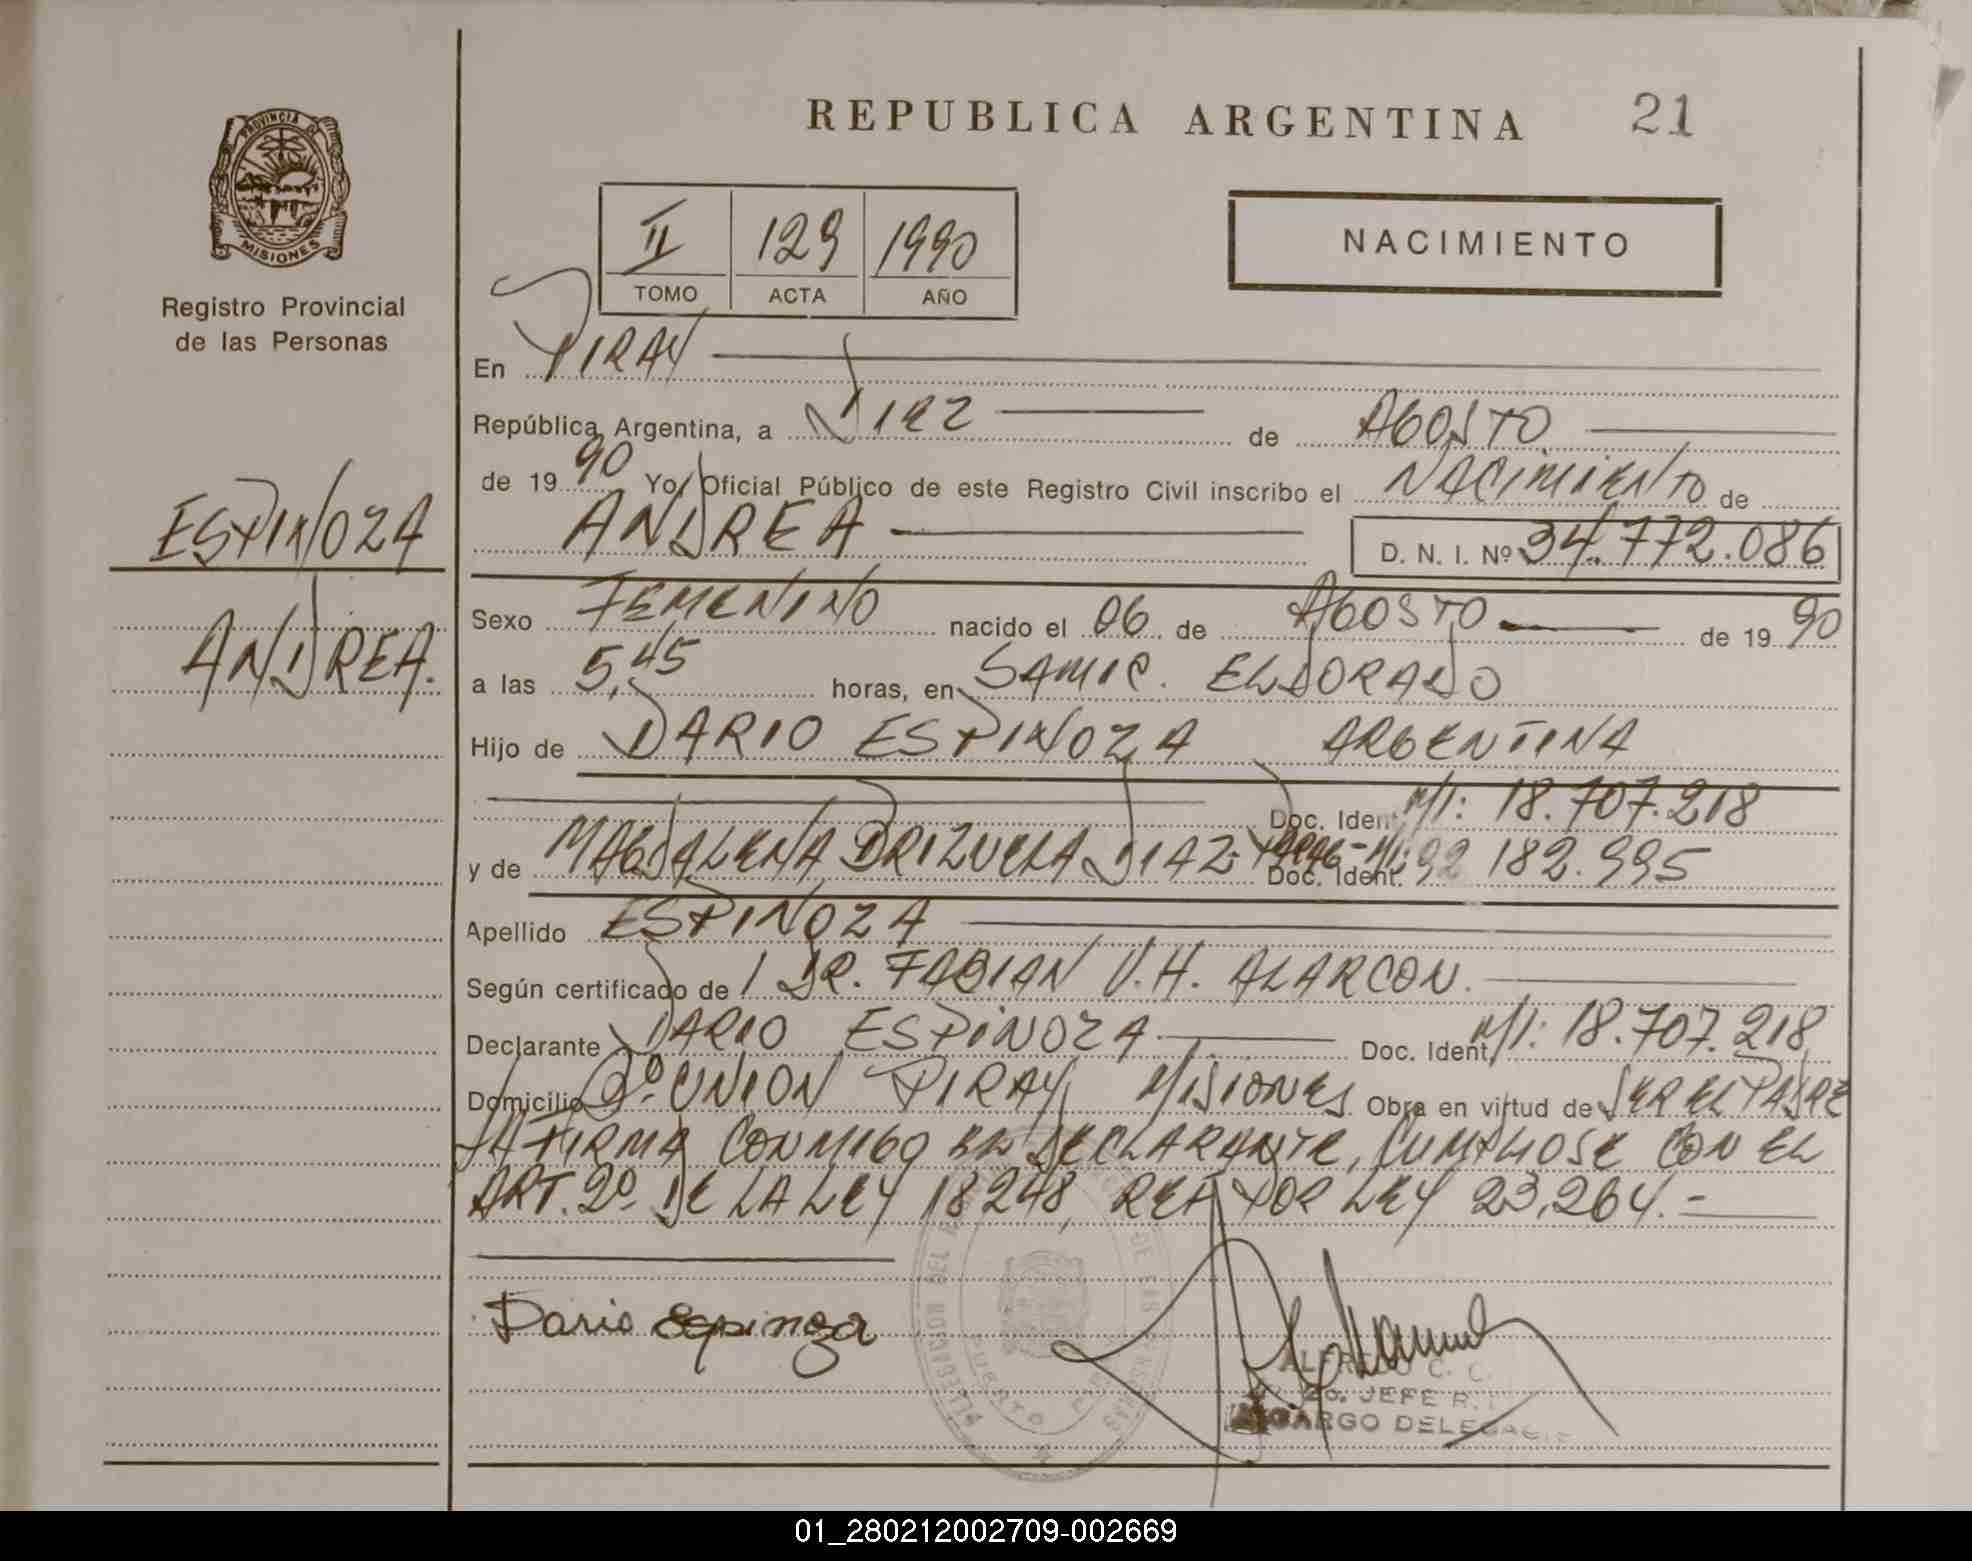 REPUBLICA ARGENTINA 21
PROVINCIA DE
MISIONES
Registro Provincial
de las Personas
II 129 1990
TOMO ACTA AÑO
NACIMIENTO
ESPINOZA
ANDREA.
En PIRAY
República Argentina, a DIEZ de AGOSTO
de 1990 Yo, Oficial Público de este Registro Civil inscribo el NACIMIENTO de
ANDREA D. N. I. Nº 34.772.086
Sexo FEMENINO nacido el 06 de AGOSTO de 1990
a las 5,45 horas, en SAMIC. ELDORADO
Hijo de DARIO ESPINOZA ARGENTINA
Doc. Ident M/I: 18.707.218
y de MAGDALENA BRIZUELA DIAZ Doc. Ident. 92 182.995
Apellido ESPINOZA
Según certificado de DR. FABIAN V.H. ALARCON.
Declarante DARIO ESPINOZA Doc. Ident M/I: 18.707.218
Domicilio Bº. UNION PIRAY MISIONES Obra en virtud de SER EL PADRE
FIRMA CONMIGO EL DECLARANTE, CUMPLIOSE CON EL
ART. 2º DE LA LEY 18248, REF. POR LEY 23.264.-
Dario Espinoza
ALFREDO C. C.
2o. JEFE R.
CARGO DELEGACIO
01_280212002709-002669